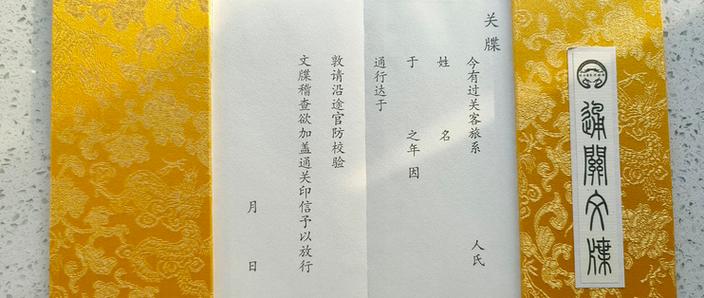 通關文牒
关牒
今有过关客旅系 人氏
姓 名
于 之年因
通行达于
敦请沿途官防校验
文牒稽查欲加盖通关印信予以放行
月 日